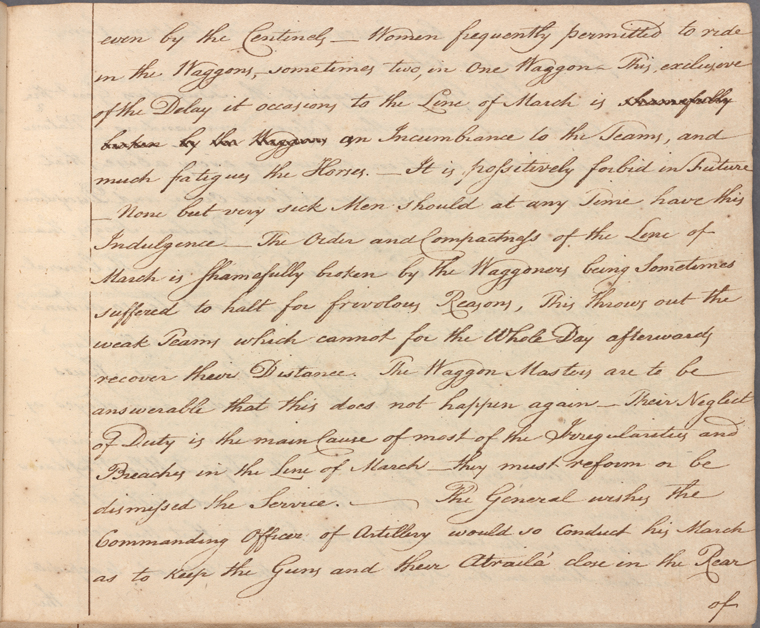 even by the Centinels — Women frequently permitted to ride
in the Waggons, sometimes two, in One Waggon — This, exclusive
of the Delay it occasions to the Line of March is shamefully
broken by the Waggons an Incumbrance to the Teams, and
much fatigues the Horses. — It is possitively forbid in Future
— None but very sick Men should at any Time have this
Indulgence — The Order and Compactness of the Line of
March is shamefully broken by The Waggoners being Sometimes
suffered to halt for frivolous Reasons, This throws out the
weak Teams which cannot for the Whole Day afterwards
recover their Distance. The Waggon Masters are to be
answerable that this does not happen again — Their Neglect
of Duty is the main Cause of most of the Irregularities and
Breaches in the Line of March — they must reform or be
dismissed the Service. — The General wishes the
Commanding Officer of Artillery would so Conduct his March
as to keep the Guns and their Atraila close in the Rear
of